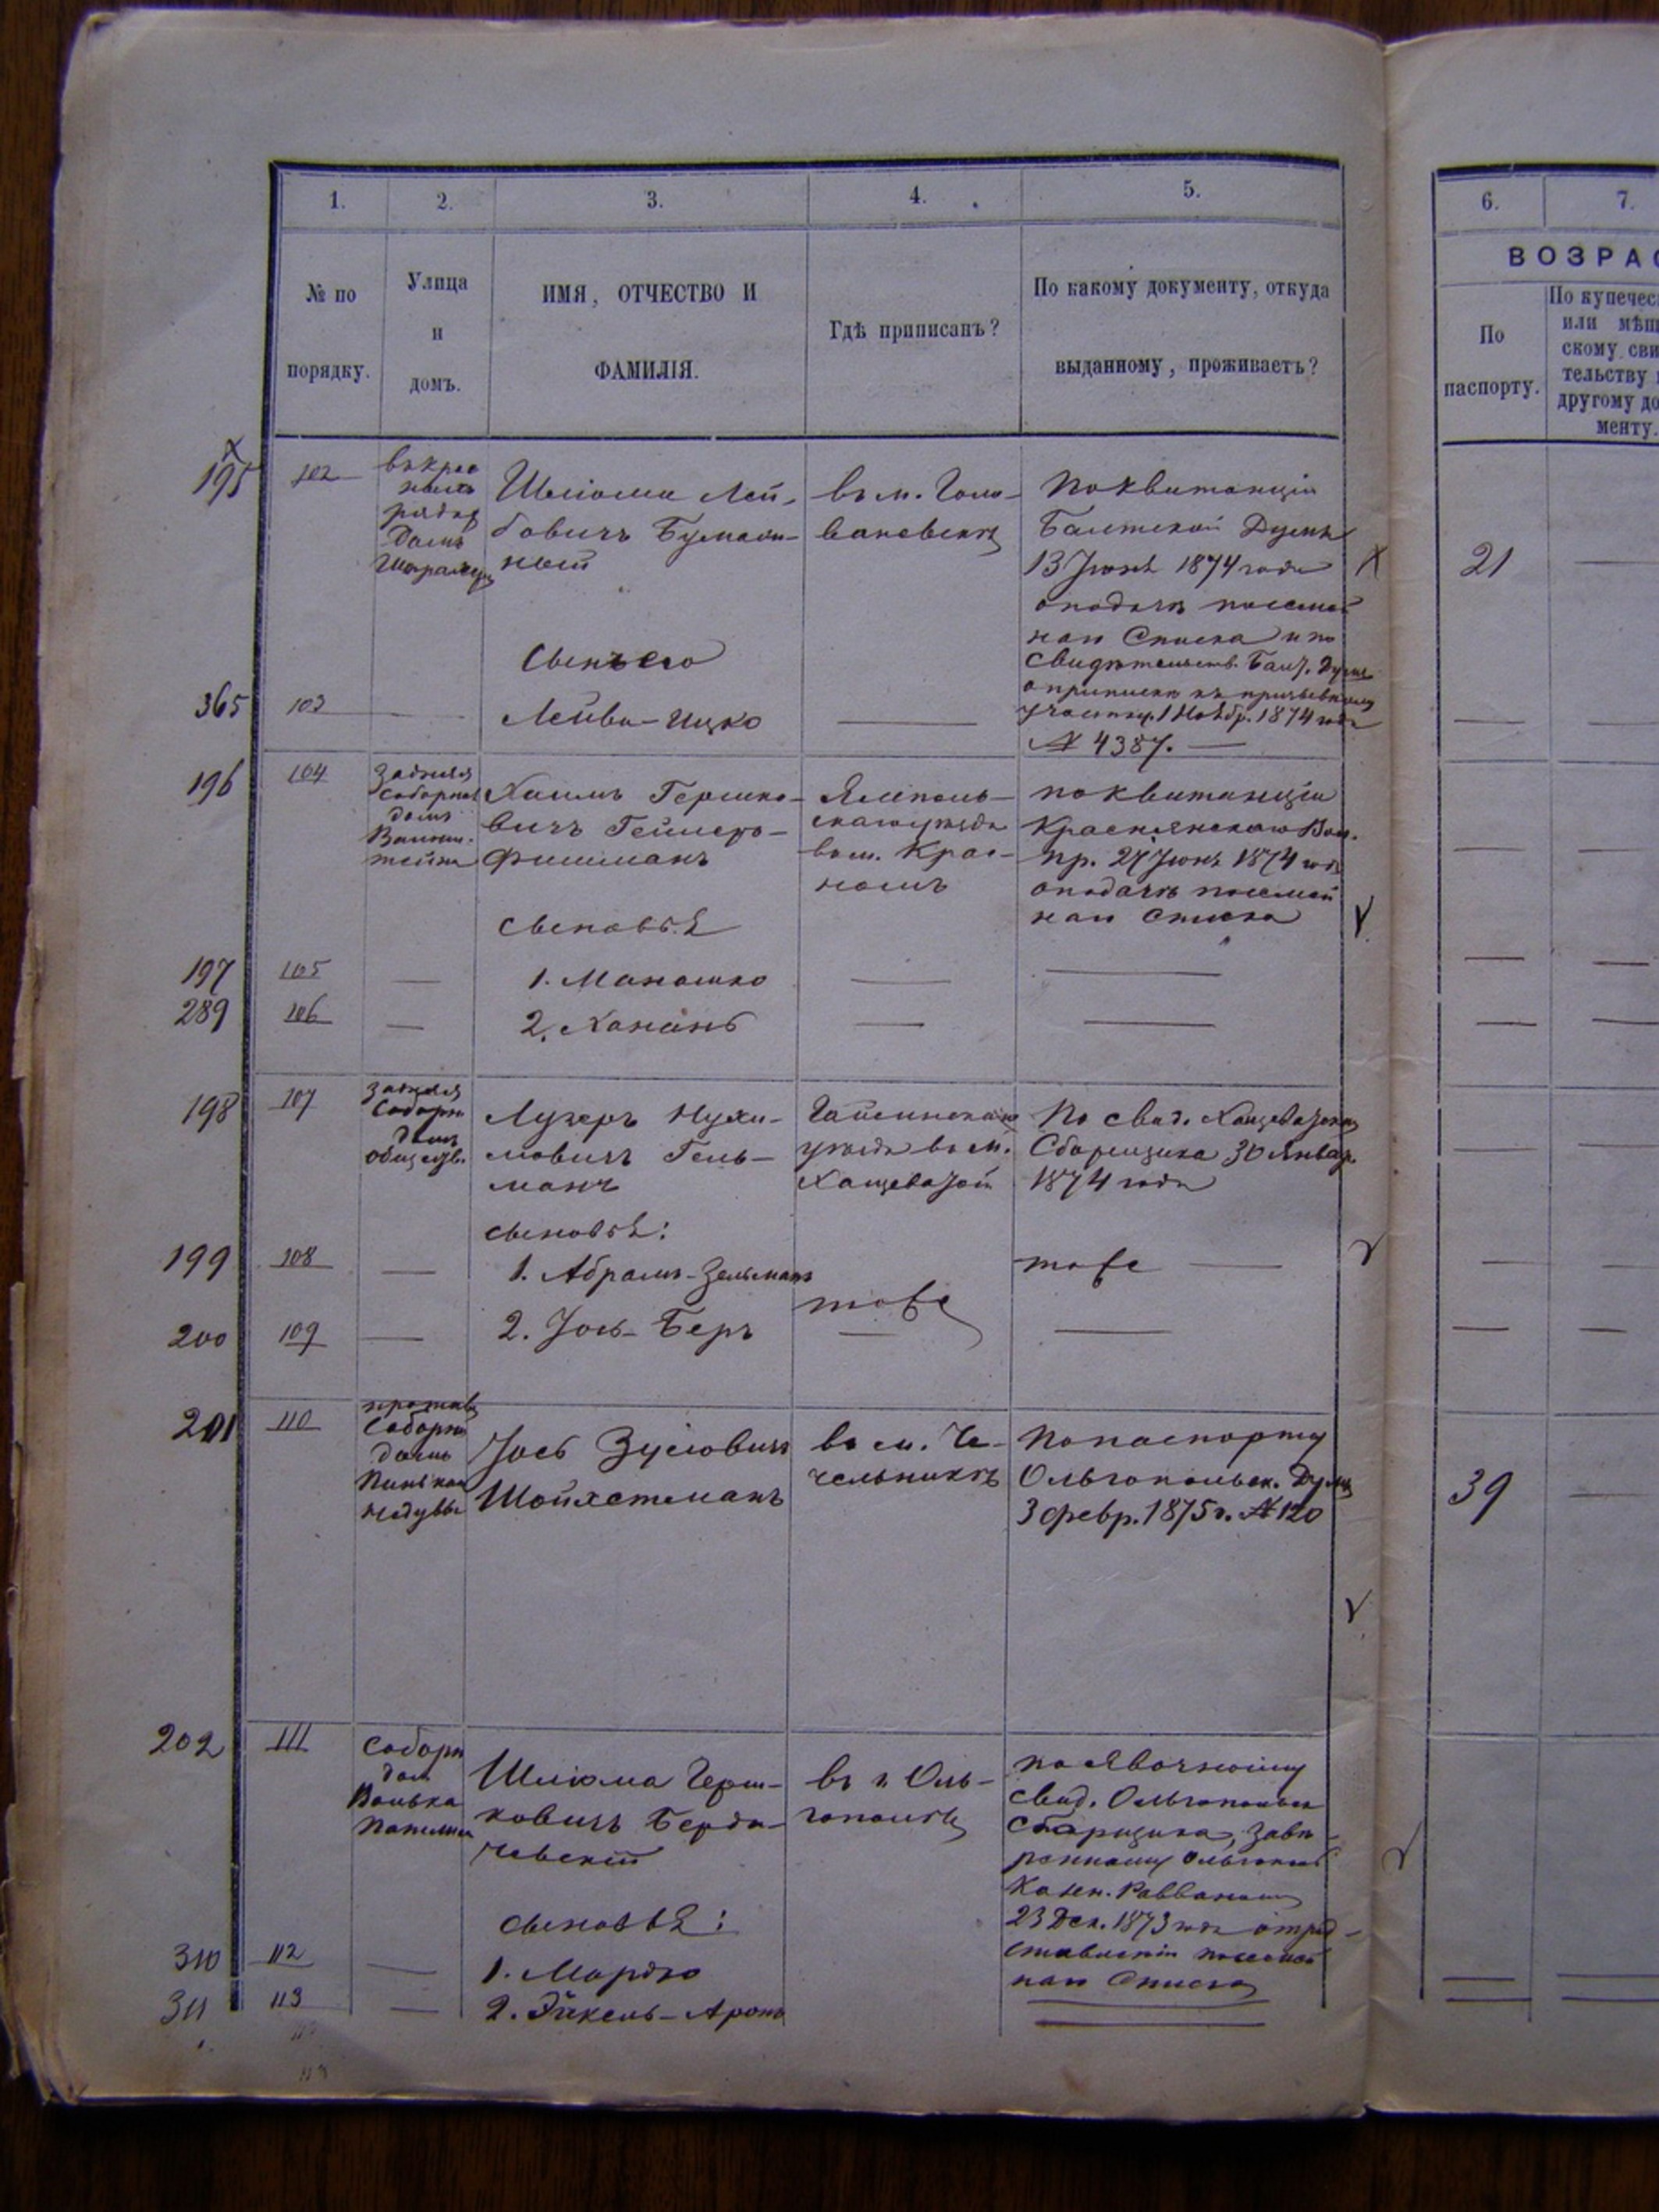 1. 2. 3. 4. 5.
№ по порядку.
Улица и домъ.
ИМЯ, ОТЧЕСТВО И ФАМИЛІЯ.
Гдѣ приписанъ?
По какому документу, откуда выданному, проживаетъ?
6. 7.
ВОЗРАС
По паспорту.
По купечес
или мѣщ
скому сви
тельству
другому до
менту.
195 102
рядах
домъ
Шліома Лей-
бовичъ
ный
въ м. Голо-
ваневскѣ
По квитанціи
Балтской Думы
13 Іюня 1874 года
о подачѣ посемей
наго Списка и по
свидѣтельств. Балт. Думы
о припискѣ къ призывному
участку 1 Ноябр. 1874 года
№ 4387.
21
Сынъ его
365 103 Лейба-Ицко
196 104
Задняя
Соборная
домъ
Хаимъ Гершко-
вичъ
фишманъ
Ямполь-
скаго уѣзда
въ м. Крас-
номъ
по квитанціи
Краснянскаго Вол.
пр. 27 Іюня 1874 года
о подачѣ посемей
наго списка
сыновья
197 105 1. Маношко
289 106 2. Хананъ
198 107
Задняя
Соборн
домъ
обществ.
Лузеръ Нухи-
мовичъ Гель-
манъ
Гайсинскаго
уѣзда въ м.
Хащеватой
По свид. Хащеватскаго
Сборщика 30 Январ.
1874 года
сыновья:
199 108 1. Абрамъ-Зельманъ тоже
тоже
200 109 2. Іось-Беръ
201 110
противъ
Соборн
домъ
Іось Зусіовичъ
Шойхетманъ
въ м. Че-
чельникѣ
По паспорту
Ольгопольск. Думы
3 февр. 1875 г. № 120
39
202 111
Соборн
дом
Шліома Герш-
ковичъ Берди-
чевскій
въ г. Оль-
гополѣ
по явочному
свид. Ольгопольск
Сборщика, завѣ-
ренному Ольгопол
Казен. Раввиномъ
23 Дек. 1873 года о пред-
ставленіи посемей
наго Списка
сыновья:
310 112 1. Мордко
311 113 2. Эйкель-Аронъ